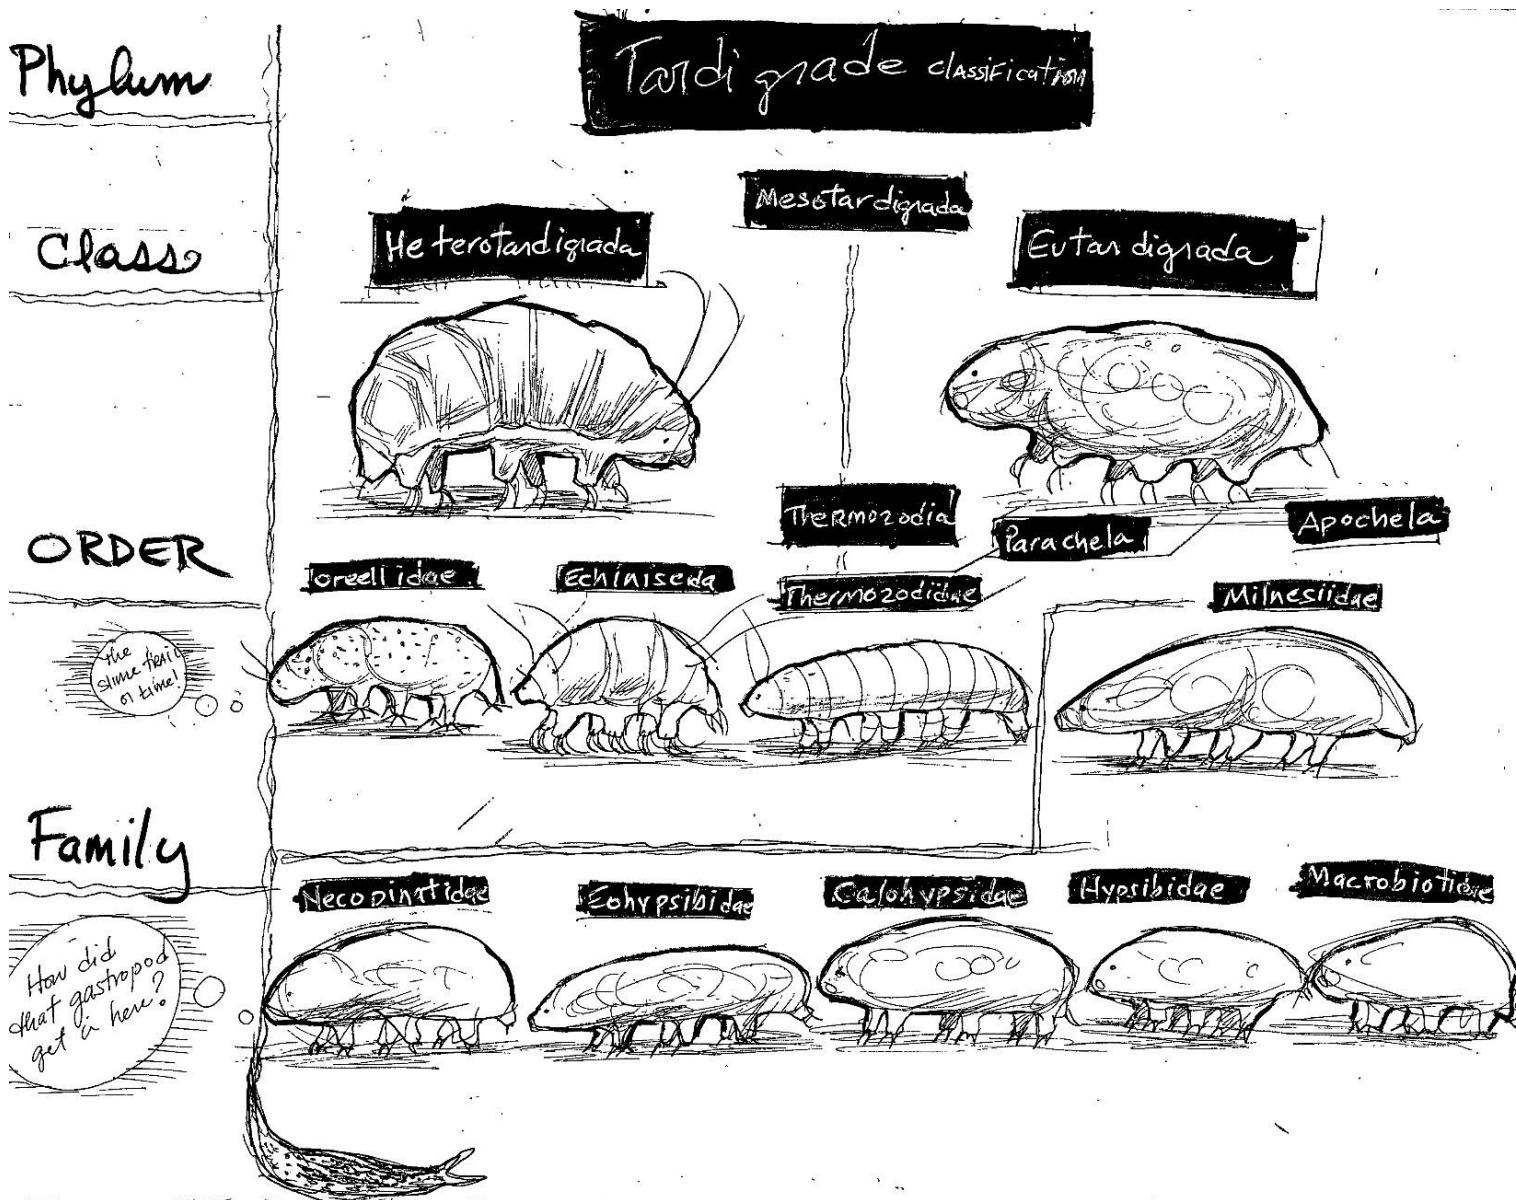 Phylum
Tardigrade classification
Class
Heterotardigrada
Mesotardigrada
Eutardigrada
ORDER
Thermozodia
Parachela
Apochela
oreellidae
Echiniscida
Thermozodidae
Milnesiidae
the
slime trail
of time!
Family
Necopinatidae
Eohypsibidae
Calohypsidae
Hypsibidae
Macrobiotidae
How did
that gastropod
get in here?